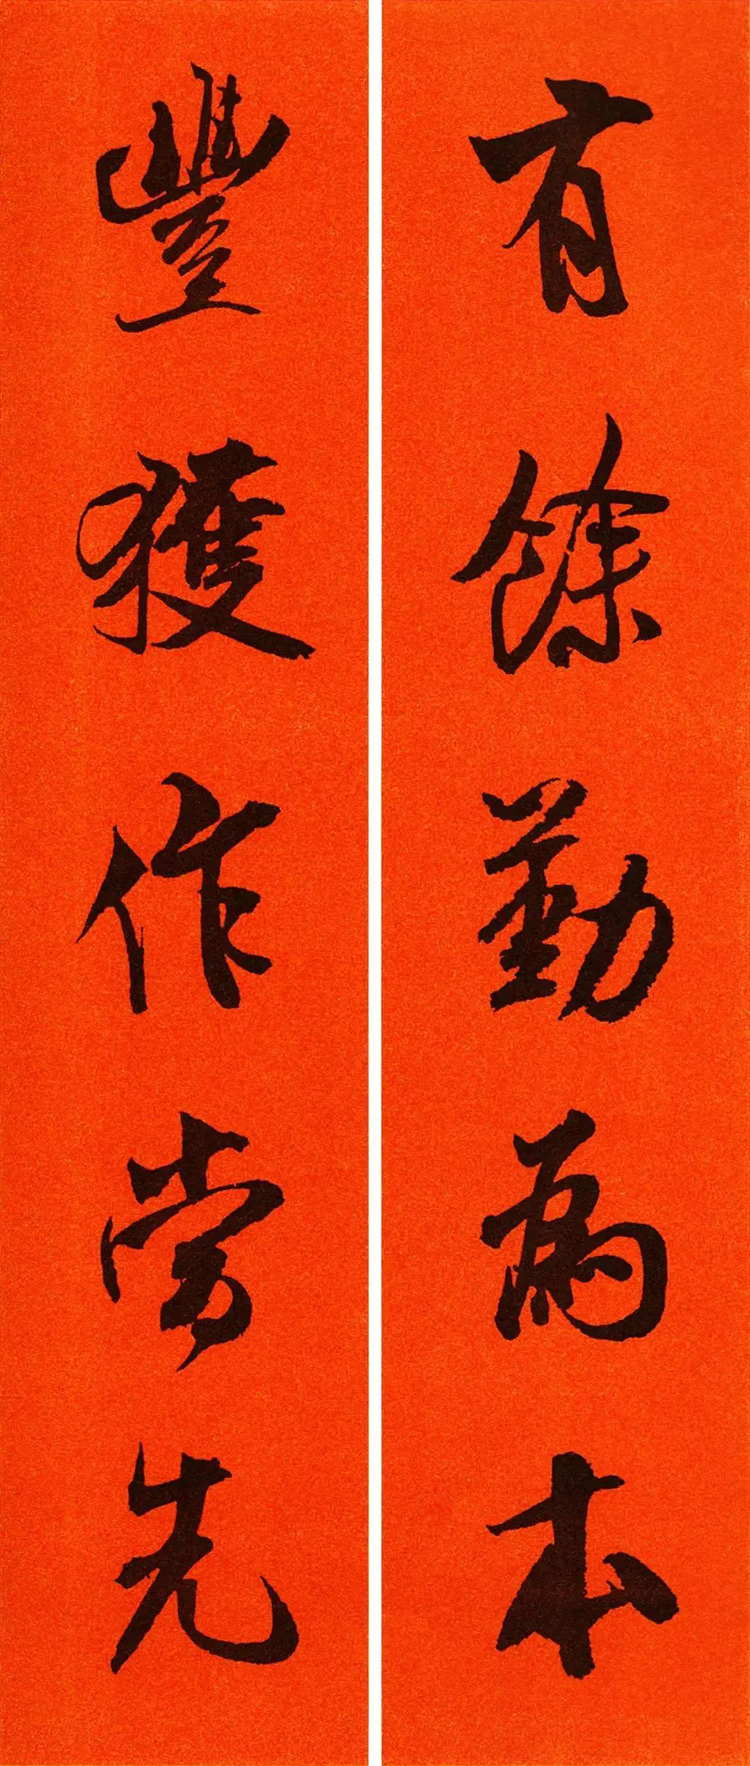 有餘勤爲本
豐獲作當先